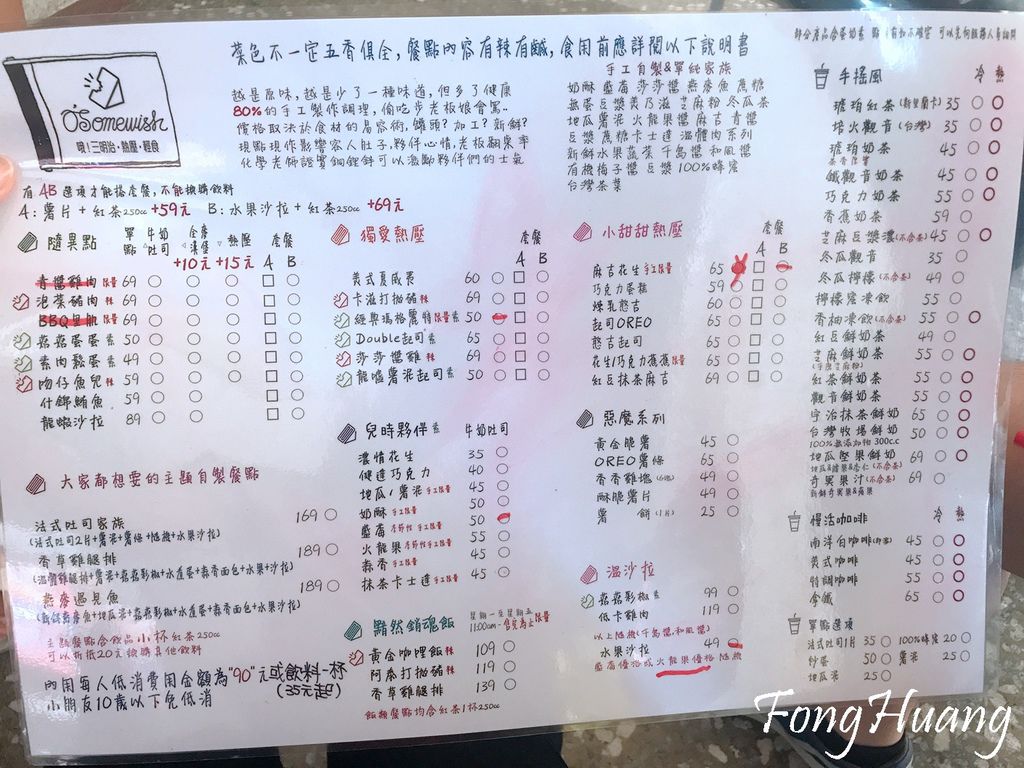 菜色不一定五香俱全,餐點內容有辣有鹹,食用前應詳閱以下說明書
O'Somewish
哦!三明治・熱壓・輕食
越是原味,越是少了一種味道,但多了健康
80%的手工製作調理,偷吃步老板娘會罵..
價格取決於食材的易容術,饅頭?加工?新鮮?
現點現作影響客人肚子,夥伴心情,老板翻桌率
手工自製&單純家族
奶酥 藍莓 莎莎醬 燕麥魚 蔗糖
無蛋豆漿美乃滋 芝麻粉 冬瓜茶
地瓜薯泥 火龍果醬 麻吉 青醬
豆漿 蔗糖卡士達 溫體肉系列
新鮮水果蔬菜 千島醬 和風醬
有機梅子醬 豆漿 100%蜂蜜
台灣茶葉
有AB選項才能搭套餐,不能換購飲料
A:薯片+紅茶250cc +59元 B:水果沙拉+紅茶250cc +69元
隨異點 單點 牛奶吐司 全麥漢堡 熱壓 套餐
+10元 +15元 A B
青醬雞肉 限量 69
泡菜豬肉 辣 69
BBQ里肌 限量 69
蒜蒜蛋蛋 素 50
素肉鬆蛋 素 49
吻仔魚兒 辣 59
什錦鮪魚 59
龍蝦沙拉 89
大家都想要的主題自製餐點
法式吐司家族 169
(法式吐司2片+薯泥+薯條+隨機+水果沙拉)
香草雞腿排 189
燕麥遇見魚 189
主題餐點含飲品小杯紅茶250cc
可以折抵20元換購其他飲料
內用每人低消費用金額為"90"元或飲料一杯
(35元起)
小朋友10歲以下免低消
獨愛熱壓 套餐
A B
美式夏威夷 60
卡滋打拋豬 辣 69
經典瑪格麗特 限量 素 50
Double起司 素 65
莎莎醬雞 辣 69
龍嗑薯泥起司 素 50
兒時夥伴 素 牛奶吐司
濃情花生 35
健達巧克力 40
地瓜/薯泥 手工限量 45
奶酥 手工限量 50
藍莓 季節性 手工限量 50
火龍果 季節性手工限量 55
蒜香 手工限量 45
抹茶卡士達 手工限量 45
黯然銷魂飯 星期一至星期五
11:00am-售完為止 限量
黃金咖哩飯 109
阿泰打拋豬 119
香草雞腿排 139
飯類餐點均含紅茶1杯250cc
小甜甜熱壓 套餐
A B
麻吉花生 手工限量 65
巧克力蛋糕 59
煉乳憨吉 60
起司OREO 65
憨吉起司 65
花生/巧克力蕉蕉 限量 60
紅豆抹茶麻吉 69
惡魔系列
黃金脆薯 45
OREO薯條 65
香香雞塊 49
酥脆薯片 49
薯餅(1片) 25
溫沙拉
蒜蒜彩椒 素 99
低卡雞肉 119
以上隨機(千島醬,和風醬)
水果沙拉 49
藍莓優格或火龍果優格 隨機
手搖風 冷 熱
琥珀紅茶(斯里蘭卡) 35
培火觀音(台灣) 35
琥珀奶茶 45
茶香厚實
鐵觀音奶茶 45
巧克力奶茶 55
香蕉奶茶 59
芝麻豆漿濃(不含茶) 45
冬瓜觀音 35
冬瓜檸檬(不含茶) 49
檸檬蜜凍飲 55
香柚凍飲(不含茶) 55
紅豆鮮奶茶 49
芝麻鮮奶茶 55
紅茶鮮奶茶 55
觀音鮮奶茶 55
宇治抹茶鮮奶 65
台灣牧場鮮奶 50
100%無添加物 300c.c
地瓜堅果鮮奶 69
奇異果汁(不含茶) 69
新鮮奇異果&蘋果
慢活咖啡 冷 熱
南洋白咖啡 45
美式咖啡 45
特調咖啡 55
拿鐵 65
單點選項
法式吐司1片 35 100%蜂蜜 20
炒蛋 50 薯泥 25
地瓜泥 25
FongHuang